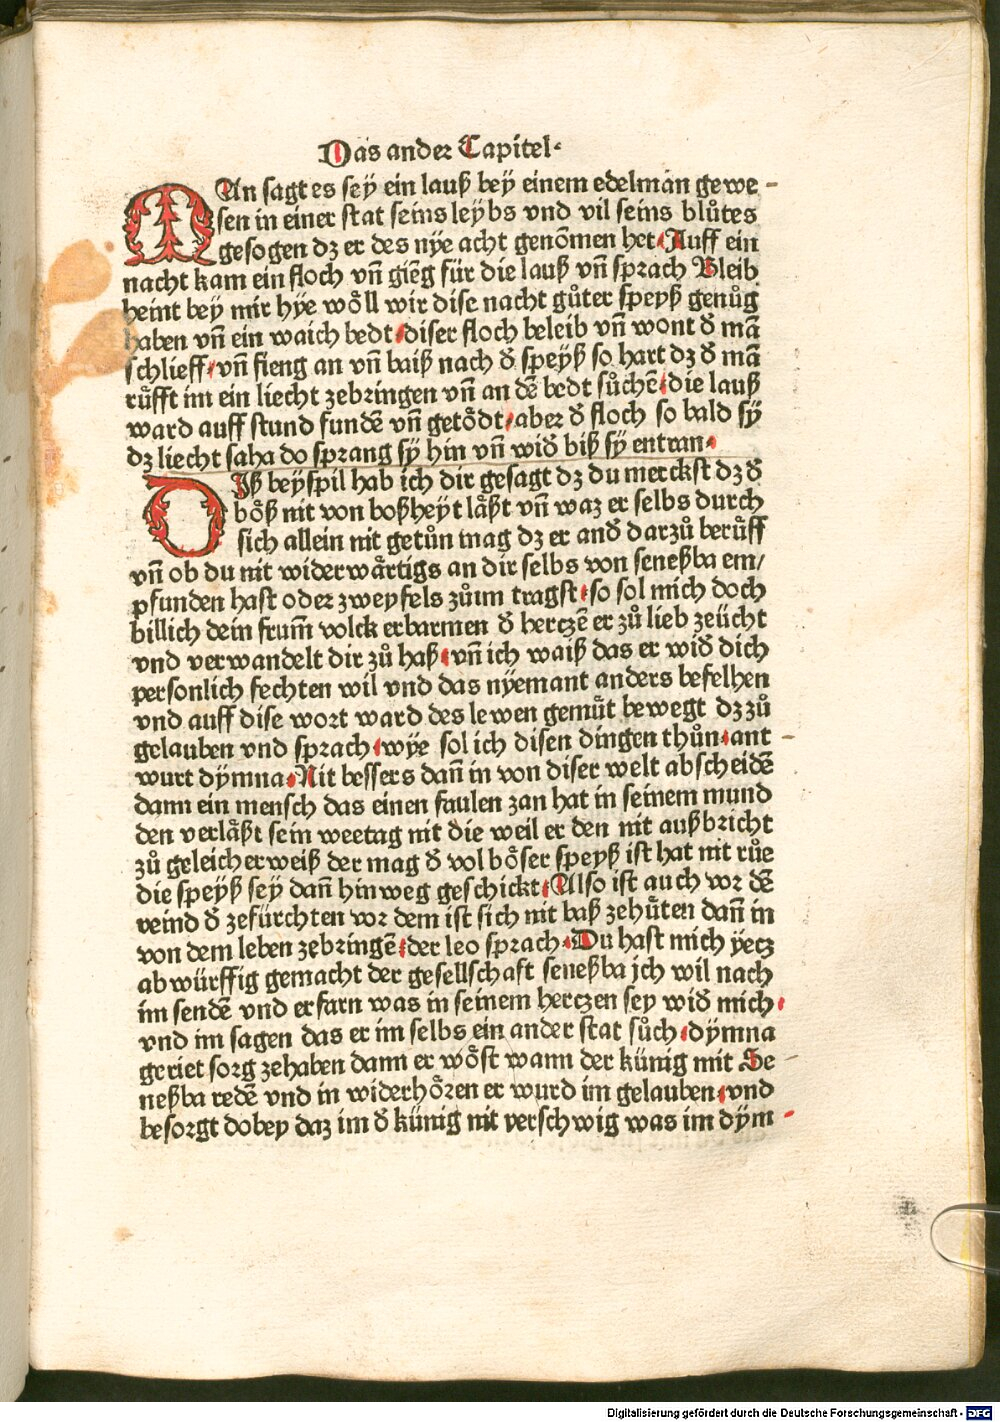 Das ander Capitel·
MAn sagt es seÿ ein lauß beÿ einem edelman gewe-
sen in einer stat seins leÿbs vnd vil seins blůtes
gesogen dz er des nÿe acht genom̄en het Auff ein
nacht kam ein floch vñ gieng für die lauß vñ sprach Bleib
heint beÿ mir hÿe wöll wir dise nacht gůter speyß genůg
haben vñ ein waich bedt diser floch beleib vñ wont ð mā
schlieff vñ fieng an vñ baiß nach ð speÿß so hart dz ð mā
rüfft im ein liecht zebringen vñ an dē bedt sůchē die lauß
ward auff stund fundē vñ getödt aber ð floch so bald sÿ
dz liecht saha do sprang sÿ hin vñ wið biß sÿ entran
DIß beÿspil hab ich dir gesagt dz du merckst dz ð
böß nit von boßheÿt läßt vñ waz er selbs durch
sich allein nit getůn mag dz er anð darzů berüff
vñ ob du nit widerwärtigs an dir selbs von seneßba em/
pfunden hast oder zweyfels zůim tragst so sol mich doch
billich dein frum̄ volck erbarmen ð hertzē er zů lieb zeücht
vnd verwandelt dir zů haß vñ ich waiß das er wið dich
personlich fechten wil vnd das nÿemant anders befelhen
vnd auff dise wort ward des lewen gemüt bewegt dz zů
gelauben vnd sprach wÿe sol ich disen dingen thůn ant-
wurt dÿmna Nit bessers dañ in von diser welt abscheidē
dann ein mensch das einen faulen zan hat in seinem mund
den verläßt sein weetag nit die weil er den nit außbricht
zů geleicherweiß der mag ð vol böser speyß ist hat nit růe
die speÿß sey dañ hinweg geschickt Also ist auch vor dē
veind ð zefürchten vor dem ist sich nit baß zehüten dañ in
von dem leben zebringē der leo sprach Du hast mich ÿetz
abwürffig gemacht der gesellschaft seneßba jch wil nach
im sendē vnd erfarn was in seinem hertzen sey wið mich
vnd im sagen das er im selbs ein ander stat sůch dÿmna
geriet sorg zehaben dann er wöst wann der künig mit Se-
neßba redē vnd in widerhören er wurd im gelauben vnd
besorgt dobey daz im ð künig nit verschwig was im dÿm-
Digitalisierung gefördert durch die Deutsche Forschungsgemeinschaft - DFG